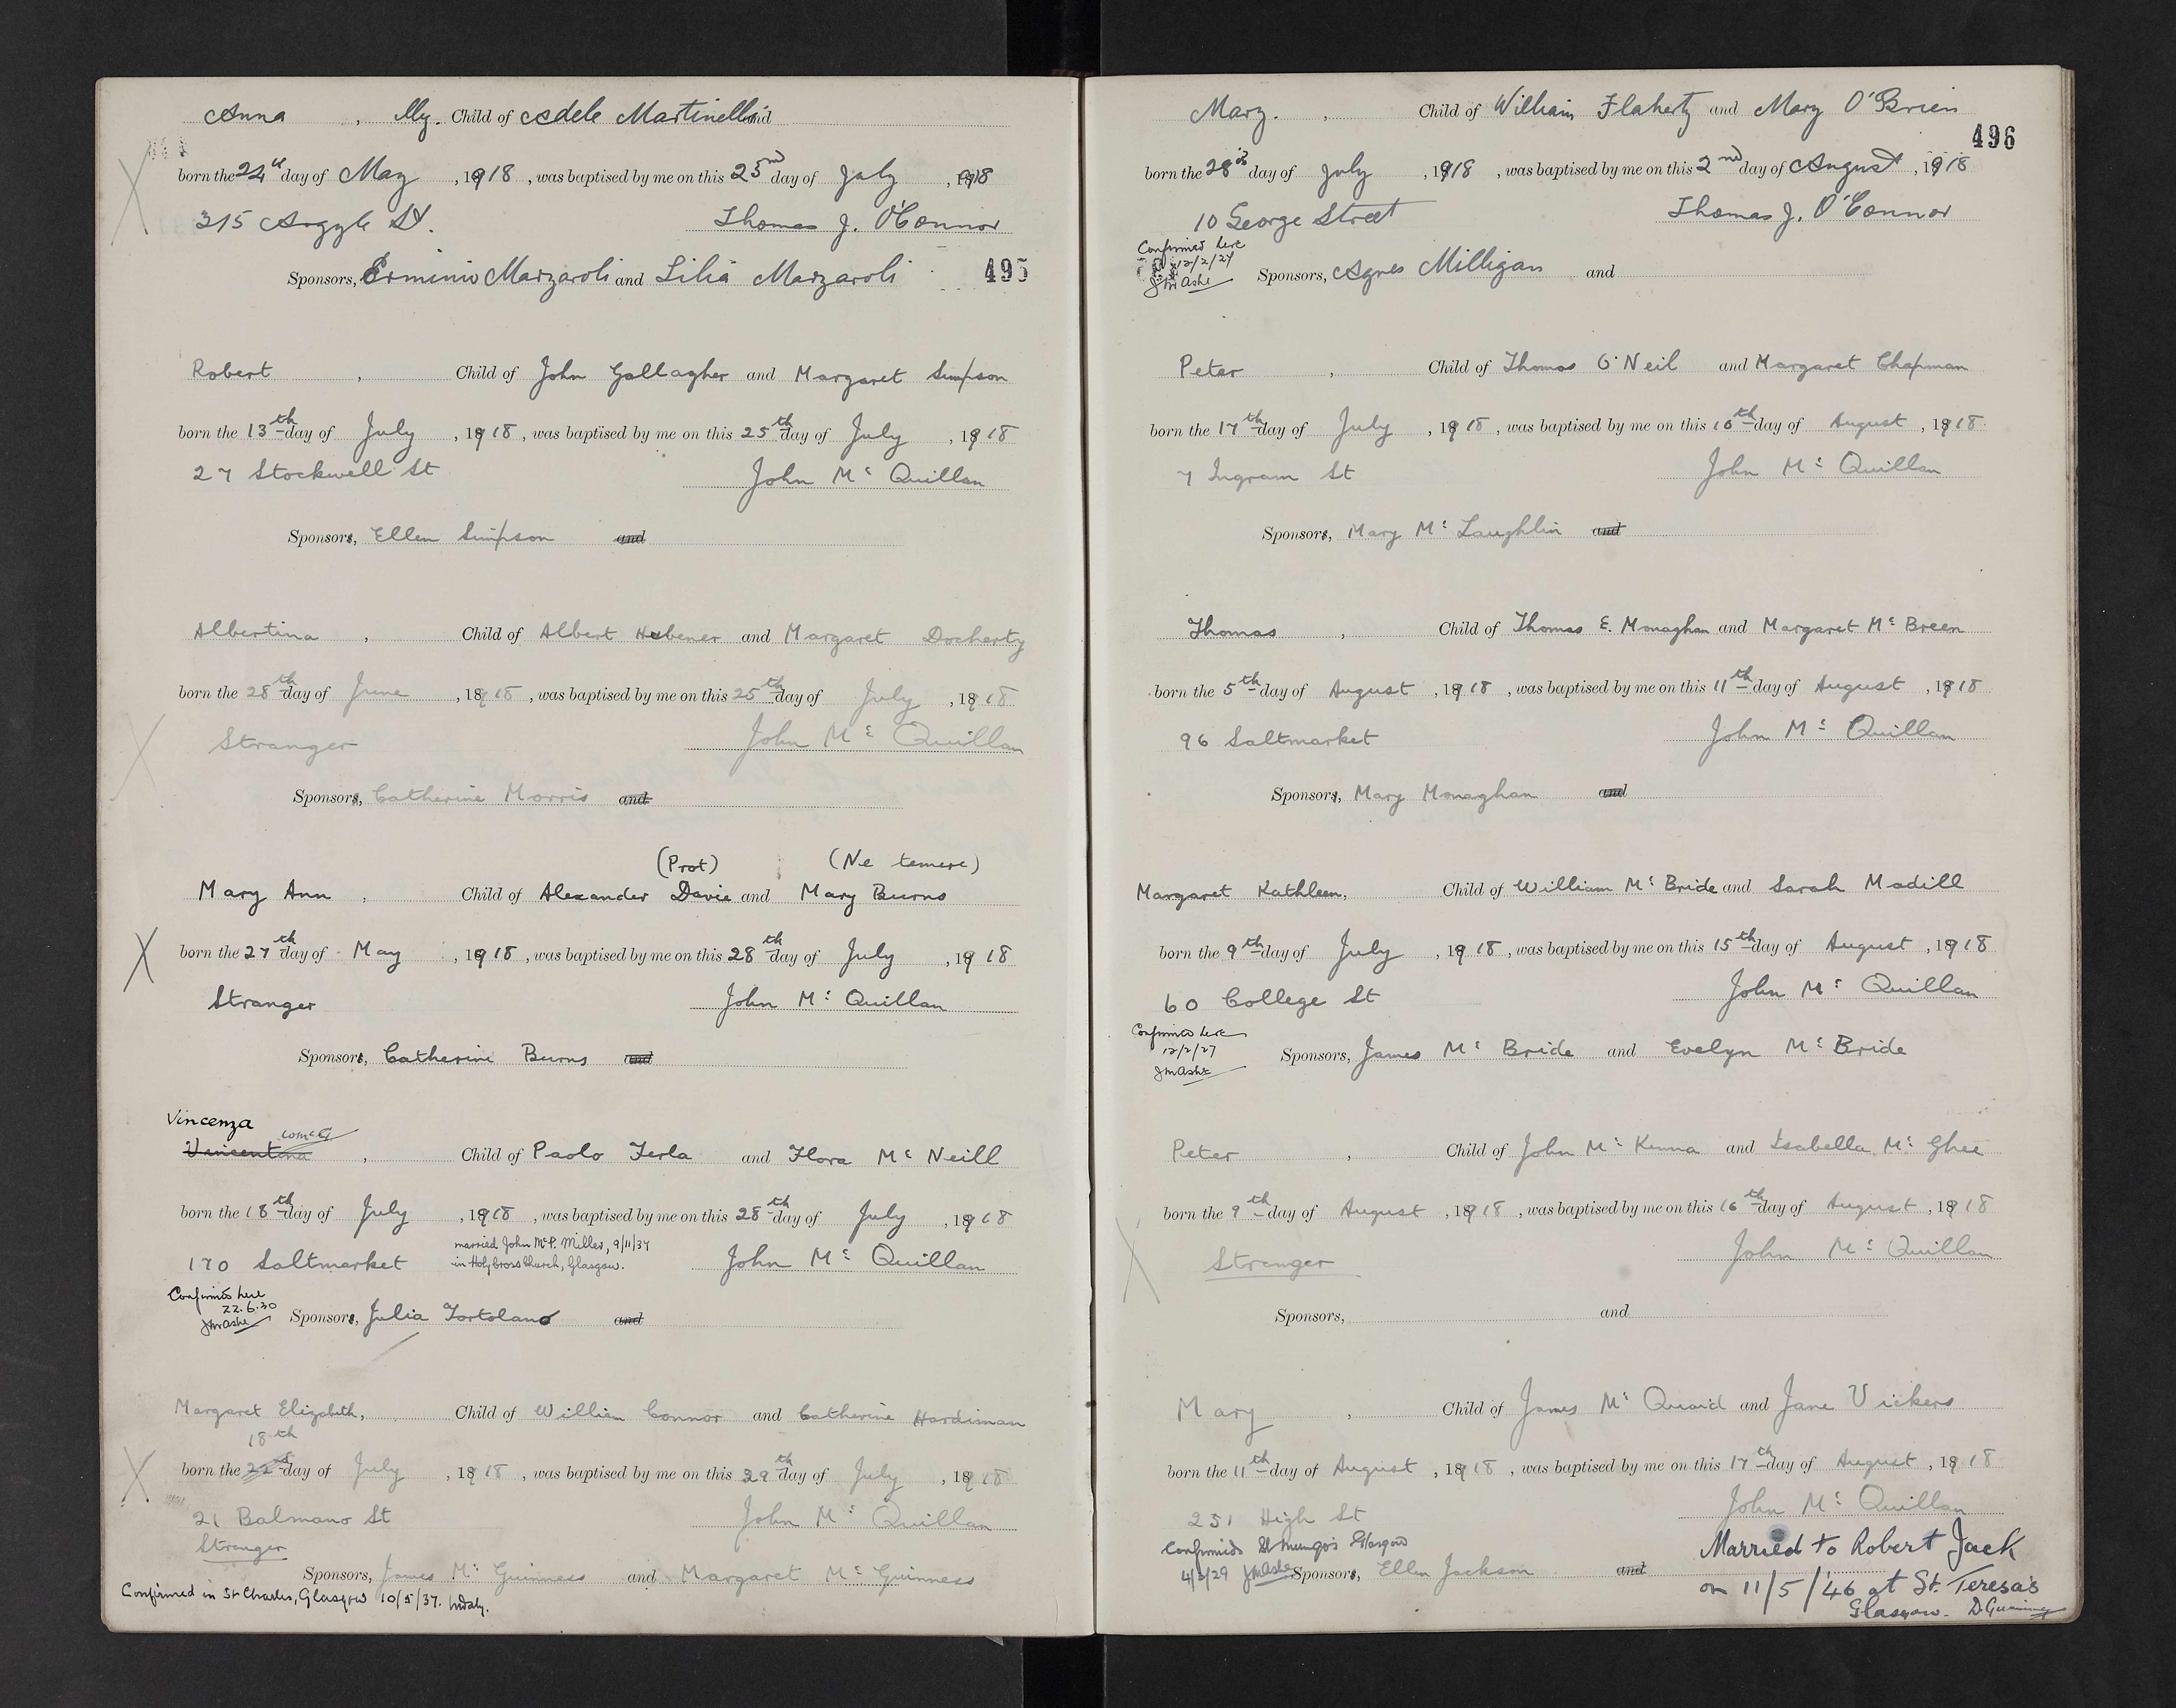 Anna , Illy. Child of Adele Martinelli and
born the 24th day of May , 1918 , was baptised by me on this 25nd day of July , 1918
315 Argyle St. Thomas J. O'Connor
Sponsors, Erminio Marzaroli and Lilia Marzaroli 495
Robert , Child of John Gallagher and Margaret Simpson
born the 13th day of July , 1918 , was baptised by me on this 25th day of July , 1918
27 Stockwell St John Mc Quillan
Sponsors, Ellen Simpson and
Albertina , Child of Albert Hebener and Margaret Docherty
born the 28th day of June , 1918 , was baptised by me on this 25th day of July , 1918
Stranger John Mc Quillan
Sponsors, Catherine Morris and
(Prot) (Ne temere)
Mary Ann , Child of Alexander Davie and Mary Burns
born the 27th day of May , 1918 , was baptised by me on this 28th day of July , 1918
Stranger John Mc Quillan
Sponsors, Catherine Burns and
Vincenza
Vincentina , Child of Paolo Ferla and Flora Mc Neill
born the 18th day of July , 1918 , was baptised by me on this 28th day of July , 1918
married John McP. Miller, 9/11/37
in Holy Cross Church, Glasgow.
170 Saltmarket John Mc Quillan
Confirmed here
22.6.30
JMAshe
Sponsors, Julia Tortolano and
Margaret Elizabeth, Child of William Connor and Catherine Hardiman
18th
born the 22nd day of July , 1918 , was baptised by me on this 29th day of July , 1918
21 Balmano St John Mc Quillan
Stranger
Sponsors, James Mc Guinness and Margaret Mc Guinness
Confirmed in St Charles, Glasgow 10/5/37.
Mary. , Child of William Flaherty and Mary O'Brien
496
born the 28th day of July , 1918 , was baptised by me on this 2nd day of August , 1918
10 George Street Thomas J. O'Connor
Confirmed here
12/2/27
JMAshe
Sponsors, Agnes Milligan and
Peter , Child of Thomas O'Neil and Margaret Chapman
born the 17th day of July , 1918 , was baptised by me on this 10th day of August , 1918
7 Ingram St John Mc Quillan
Sponsors, Mary Mc Laughlin and
Thomas , Child of Thomas E. Monaghan and Margaret Mc Breen
born the 5th day of August , 1918 , was baptised by me on this 11th day of August , 1918
96 Saltmarket John Mc Quillan
Sponsors, Mary Monaghan and
Margaret Kathleen, Child of William Mc Bride and Sarah Madill
born the 9th day of July , 1918 , was baptised by me on this 15th day of August , 1918
60 College St John Mc Quillan
Confirmed here
12/2/27
JMAshe
Sponsors, James Mc Bride and Evelyn Mc Bride
Peter , Child of John Mc Kenna and Isabella Mc Ghee
born the 9th day of August , 1918 , was baptised by me on this 16th day of August , 1918
Stranger John Mc Quillan
Sponsors, and
Mary , Child of James Mc Quaid and Jane Vickers
born the 11th day of August , 1918 , was baptised by me on this 17th day of August , 1918
251 High St John Mc Quillan
Confirmed St Mungo's Glasgow
4/2/29 JMAshe Sponsors, Ellen Jackson and
Married to Robert Jack
on 11/5/'46 at St. Teresa's
Glasgow.